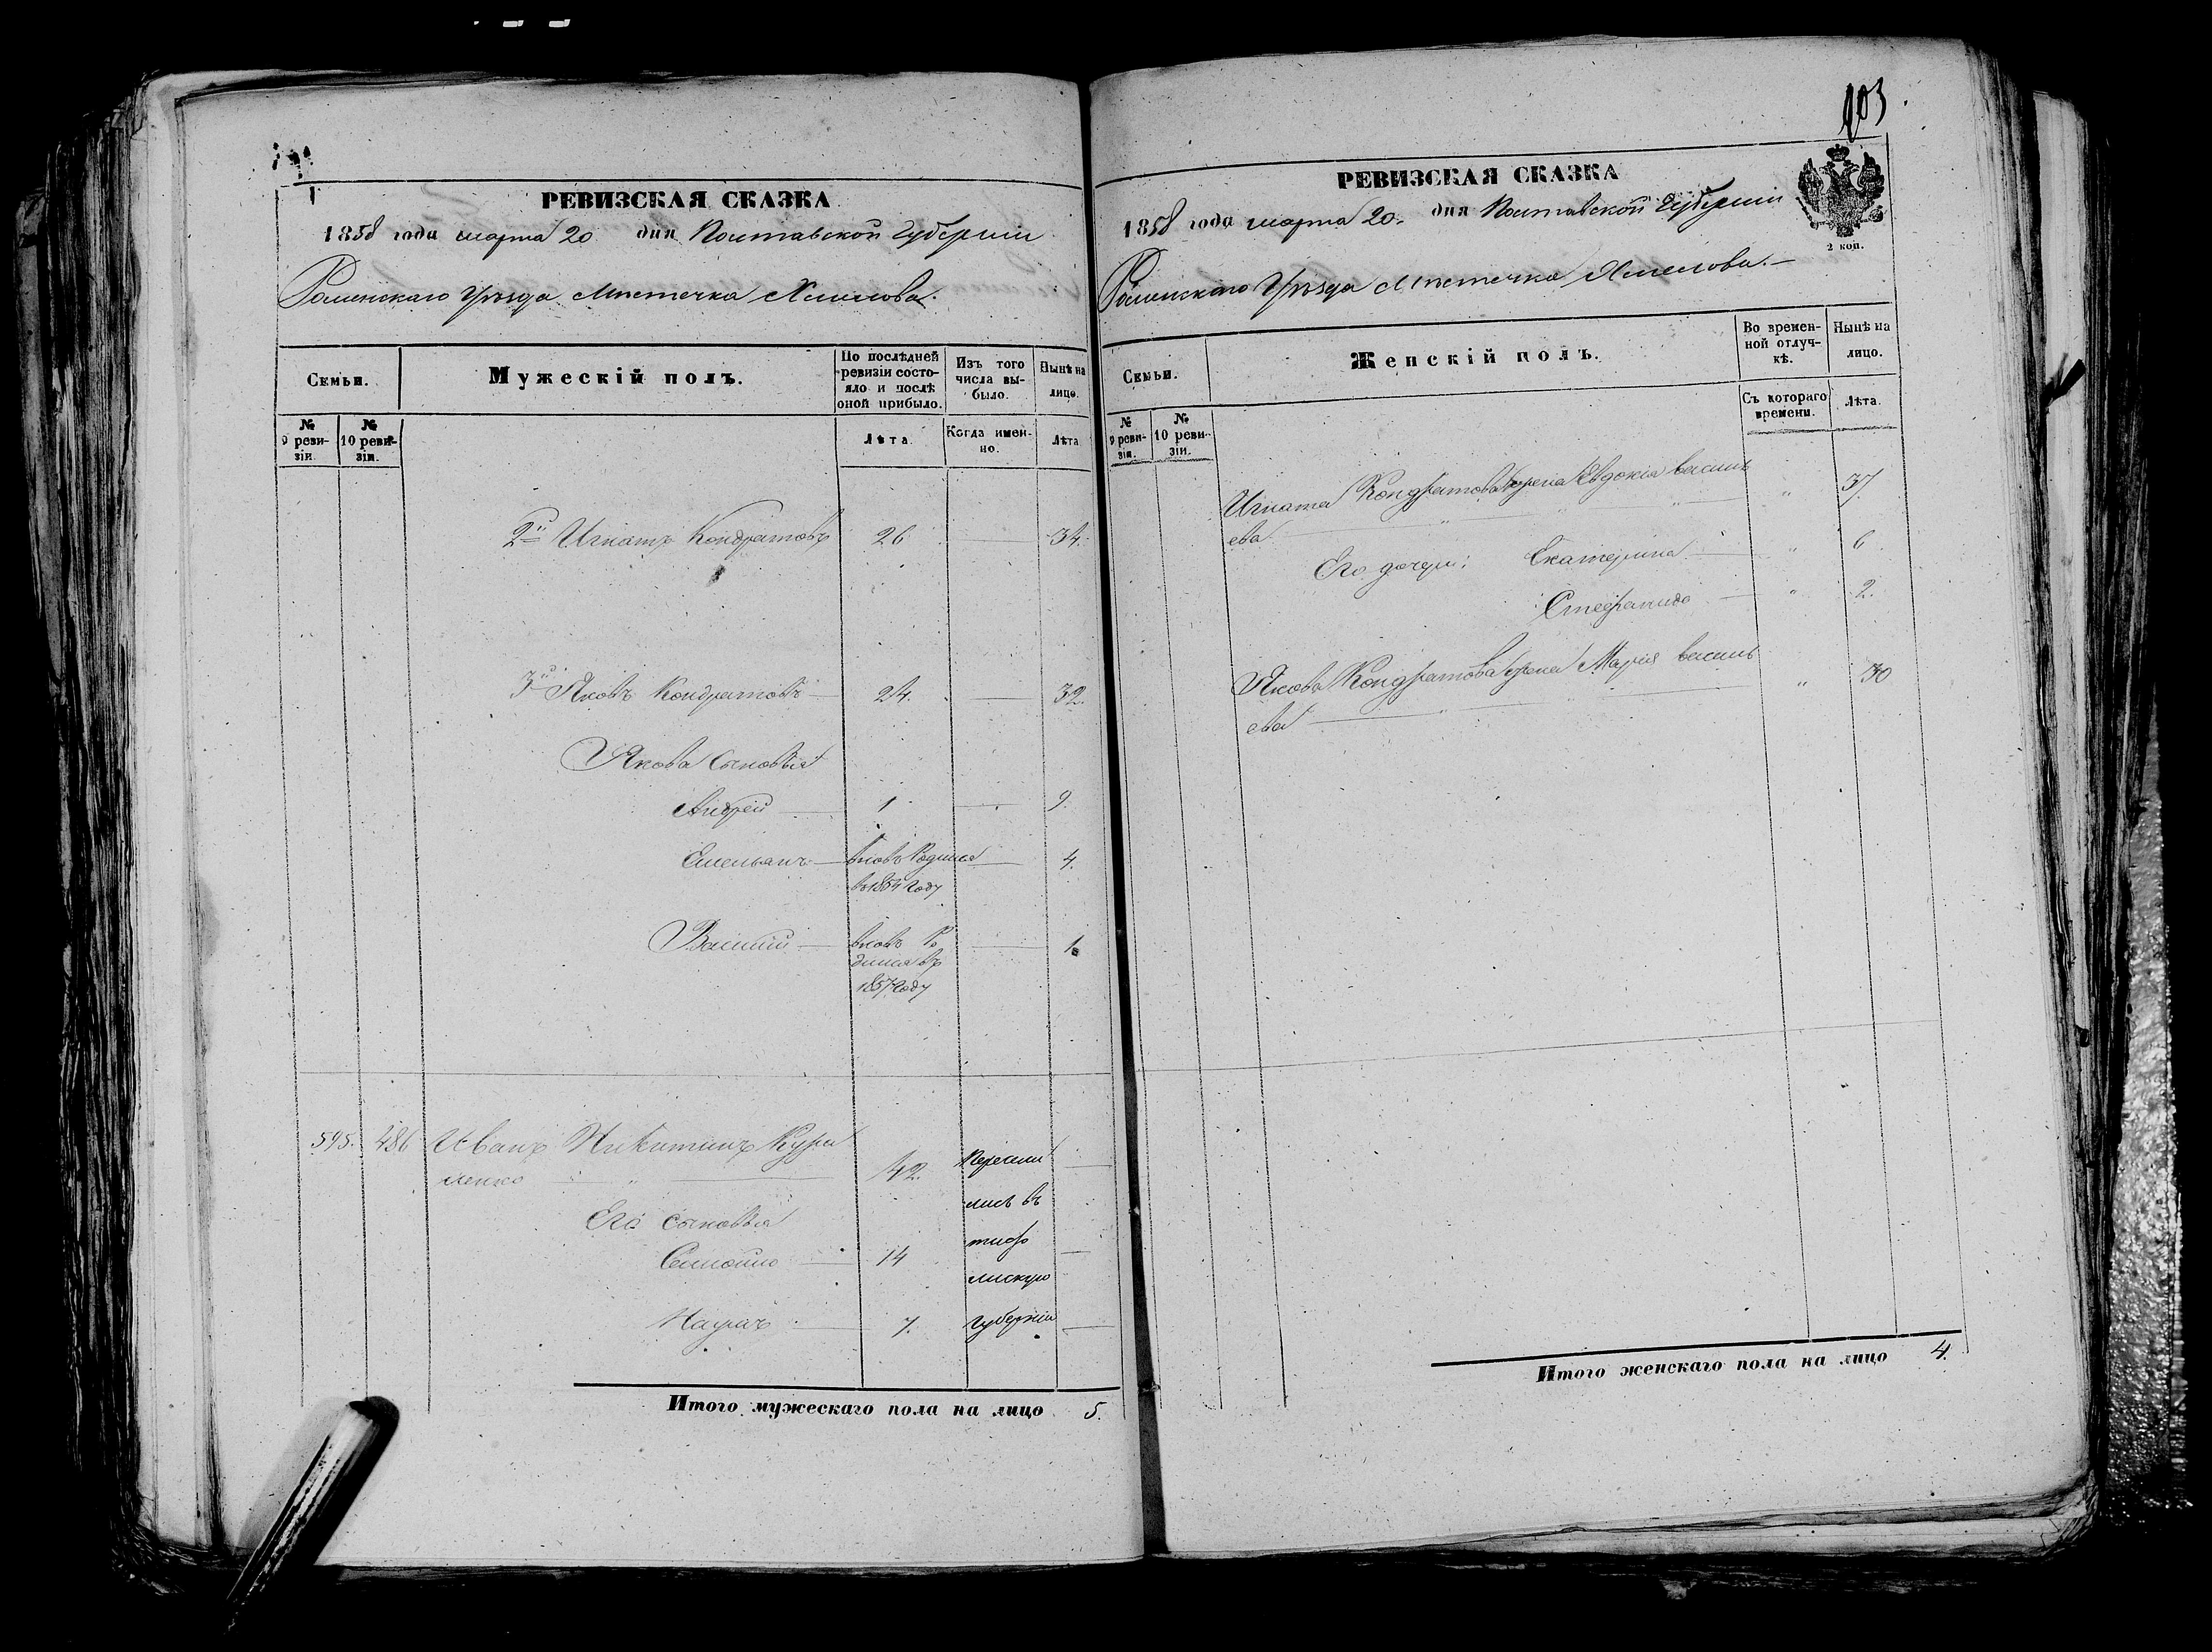 РЕВИЗСКАЯ СКАЗКА
1858 года марта 20 дня Полтавской Губерніи
Роменскаго Уѣзда Мѣстечка Хмелова.
Семьи.
Мужескій полъ.
По послѣдней ревизіи состояло и послѣ оной прибыло.
Изъ того числа выбыло.
Нынѣ на лицо.
№ 9 ревизіи.
№ 10 ревизіи.
Лѣта.
Когда именно.
Лѣта
2й Игнатъ Кондратовъ 26 34.
3й Яковъ Кондратовъ 24. 32.
Якова сыновья
Андрей 1 9.
Емельянъ вновь родился 4.
въ 1854 году
Василий вновь ро 1
дился въ
1857 году
595. 486 Иванъ Никитинъ Кури
ленко 42. Пересели
лись въ
Его сыновья
тиф
Самойло 14
лискую
Наумъ 7. губернію
Итого мужескаго пола на лицо 5.
103
РЕВИЗСКАЯ СКАЗКА
2 коп.
1858 года марта 20. дня Полтавской Губерніи
Роменскаго Уѣзда Мѣстечка Хмелова.
Семьи.
Женскій полъ.
Во временной отлучкѣ.
Нынѣ на лицо.
№ 9 ревизіи.
№ 10 ревизіи.
Съ котораго времени.
Лѣта.
Игната Кондратова жена Евдокія василь " 37
ева
Его дочери: Екатерина " 6
Стефанида " 2.
Якова Кондратова жена Марія василь " 30
ева
Итого женскаго пола на лицо 4.